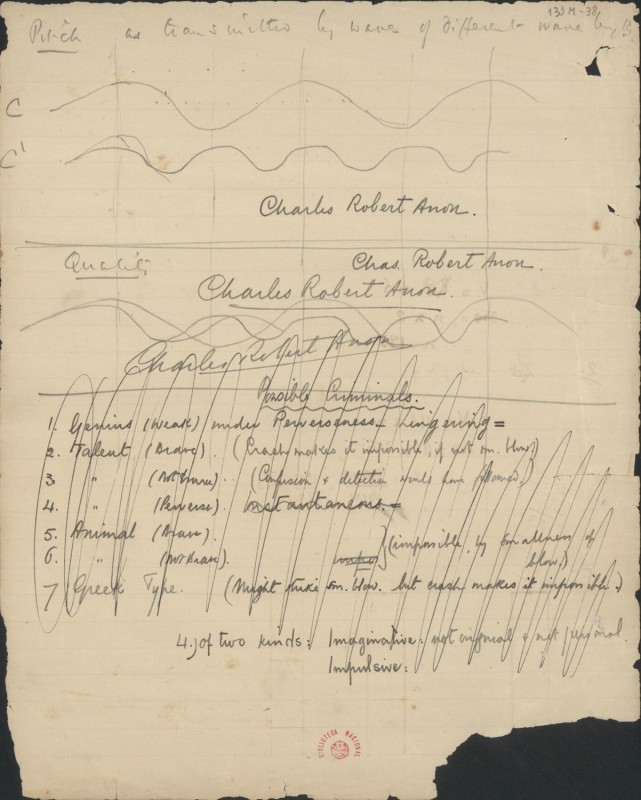 133M-38
Pitch as transmitted by waves of different wave length
C
C'
Charles Robert Anon.
Quality
Chas. Robert Anon.
Charles Robert Anon.
Charles Robert Anon
Possible Criminals.
1. Genius (Weak) under Perverseness - Lingering =
2. Talent (Brave). (Crash makes it impossible, if not sm. blow)
3. " (Not brave). (Confusion & detection would have followed.)
4. " (Perverse). instantaneous. =
5. Animal (Brave).
6. " (Not brave). (impossible, by smallness of
blow.)
7 Greek Type. (Might strike sm. blow. but crash makes it impossible.)
4.) of two kinds: Imaginative: not original & not personal.
Impulsive:
BIBLIOTECA NACIONAL